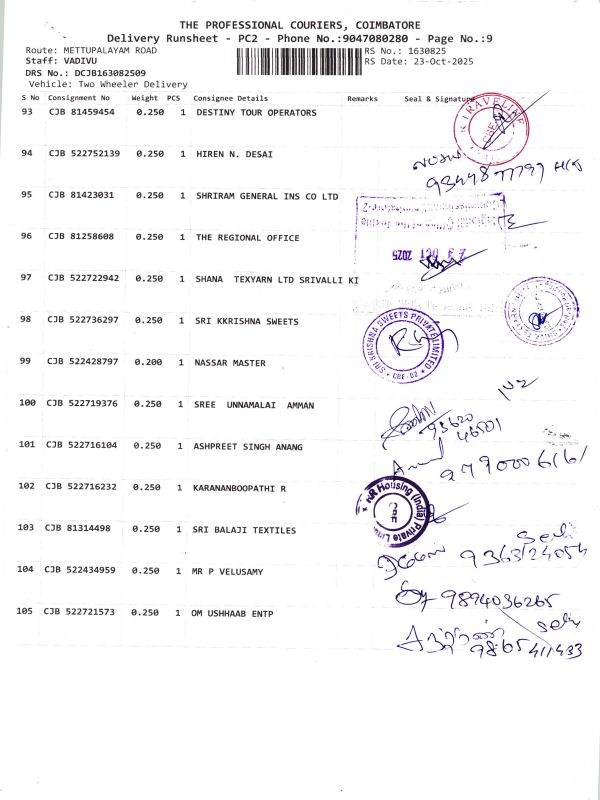 THE PROFESSIONAL COURIERS, COIMBATORE
Delivery Runsheet - PC2 - Phone No.:9047080280 - Page No.:9
Route: METTUPALAYAM ROAD
RS No.: 1630825
Staff: VADIVU
RS Date: 23-Oct-2025
DRS No.: DCJB163082509
Vehicle: Two Wheeler Delivery
S No Consignment No Weight PCS Consignee Details Remarks Seal & Signature
93 CJB 81459454 0.250 1 DESTINY TOUR OPERATORS
94 CJB 522752139 0.250 1 HIREN N. DESAI
95 CJB 81423031 0.250 1 SHRIRAM GENERAL INS CO LTD
96 CJB 81258608 0.250 1 THE REGIONAL OFFICE
23 OCT 2025
97 CJB 522722942 0.250 1 SHANA TEXYARN LTD SRIVALLI KI
98 CJB 522736297 0.250 1 SRI KKRISHNA SWEETS
SRI KRISHNA SWEETS PRIVATE LIMITED
CBE-02
99 CJB 522428797 0.200 1 NASSAR MASTER
100 CJB 522719376 0.250 1 SREE UNNAMALAI AMMAN
101 CJB 522716104 0.250 1 ASHPREET SINGH ANANG
9790006161
102 CJB 522716232 0.250 1 KARANANBOOPATHI R
Housing (India) Private Limi
103 CJB 81314498 0.250 1 SRI BALAJI TEXTILES
9363124054
104 CJB 522434959 0.250 1 MR P VELUSAMY
9894036265
105 CJB 522721573 0.250 1 OM USHHAAB ENTP
9865411433